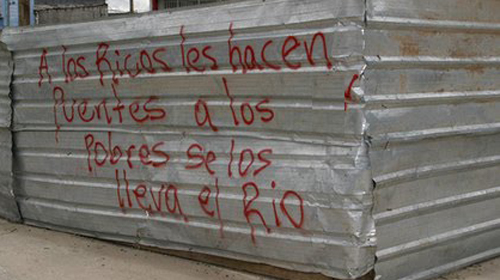 A los Ricos les hacen
Puentes a los
Pobres se los
lleva el Rio